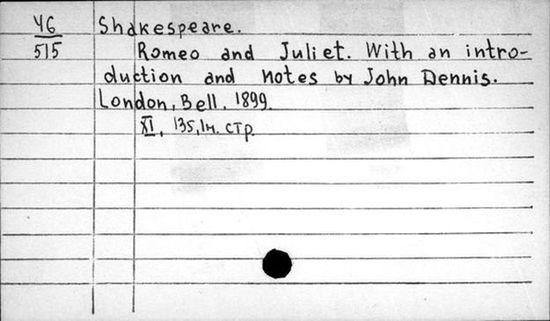 Ч6
515
Shakespeare.
Romeo and Juliet. With an intro-
duction and notes by John Dennis.
London, Bell, 1899.
XI, 135, 1н. стр.